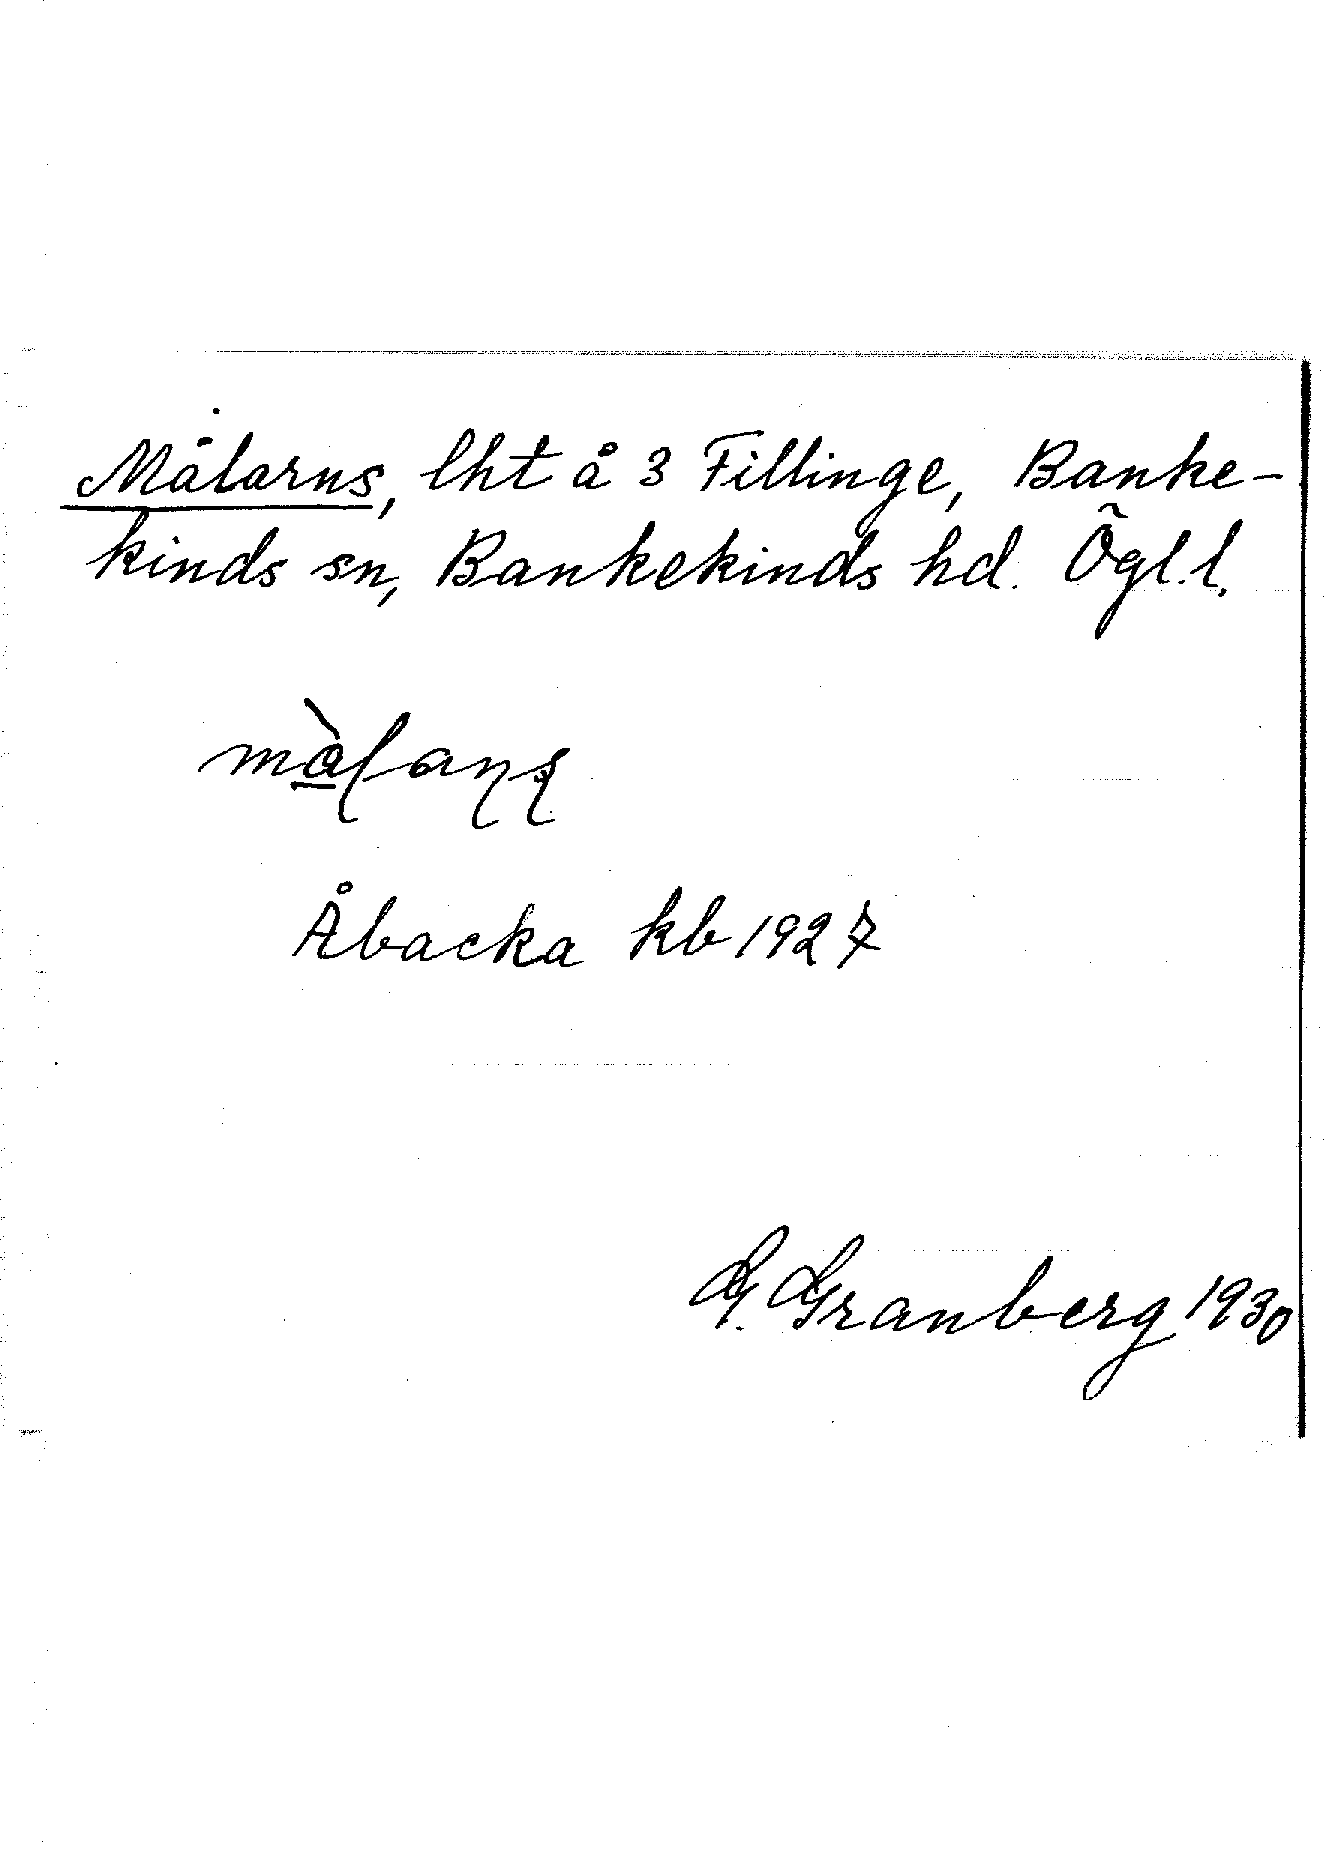 Målarns, lht å 3 Fillinge, Banke-
kinds sn, Bankekinds hd. Ögl. l.
Åbacka kb 1927
G. Granberg 1930